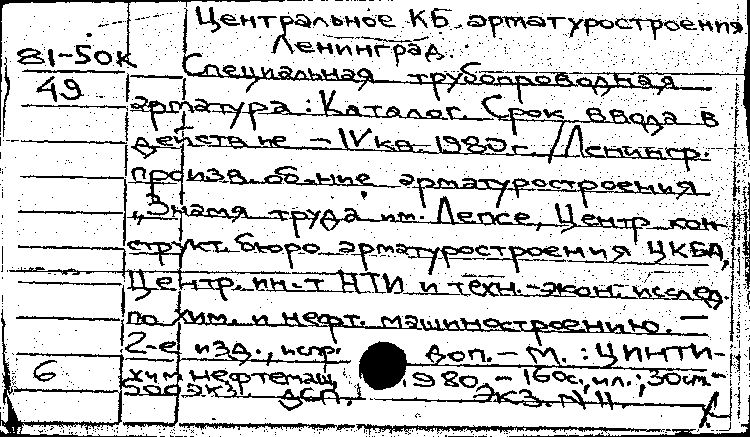 Центральное КБ арматуростроения
Ленинград.
81-50к
Специальная трубопроводная
49
арматура: Каталог. Срок ввода в
действие – IV кв. 1980 г. / Ленингр.
произв. об-ние арматуростроения
„Знамя труда им. Лепсе, Центр. кон
структ. бюро арматуростроения ЦКБА,
Центр. ин-т НТИ и техн.-экон. исслед.
по хим. и нефт. машиностроению. –
2-е изд., испр. доп. – М.: ЦИНТИ-
6
химнефтемаш, 1980. – 160 с., ил.; 30 см –
500 экз. ДСП. Экз. N 11.